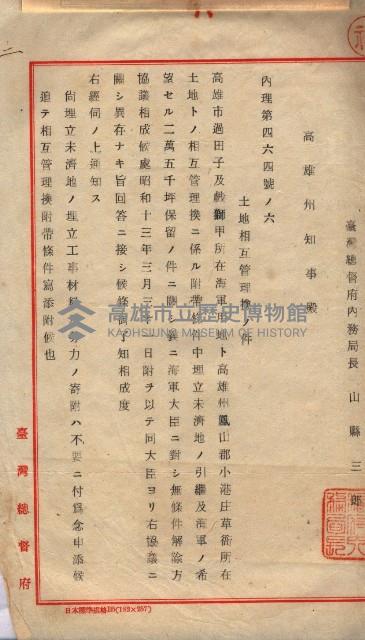 臺灣總督府內務局長　山縣三郎
高雄州知事殿
內理第四六四號ノ六
土地相互管理換ノ件
高雄市過田子及戲獅甲所在海軍用地ト高雄州鳳山郡小港庄草衙所在
土地トノ相互管理換ニ係ル附帶條件中埋立未濟地ノ引繼及海軍ノ希
望セル二萬五千坪保留ノ件ニ關シ曩ニ海軍大臣ニ對シ無條件解除方
協議相成候處昭和十三年三月三　日附ヲ以テ同大臣ヨリ右協議ニ
關シ異存ナキ旨回答ニ接シ候條御了知相成度
右經伺ノ上通知ス
尙埋立未濟地ノ埋立工事材料　努力ノ寄附ハ不要ニ付爲念申添候
追テ相互管理換附帶條件寫添附候也
臺灣總督府
日本標準規格B5(182×257)
高雄市立歷史博物館
KAOHSIUNG MUSEUM OF HISTORY